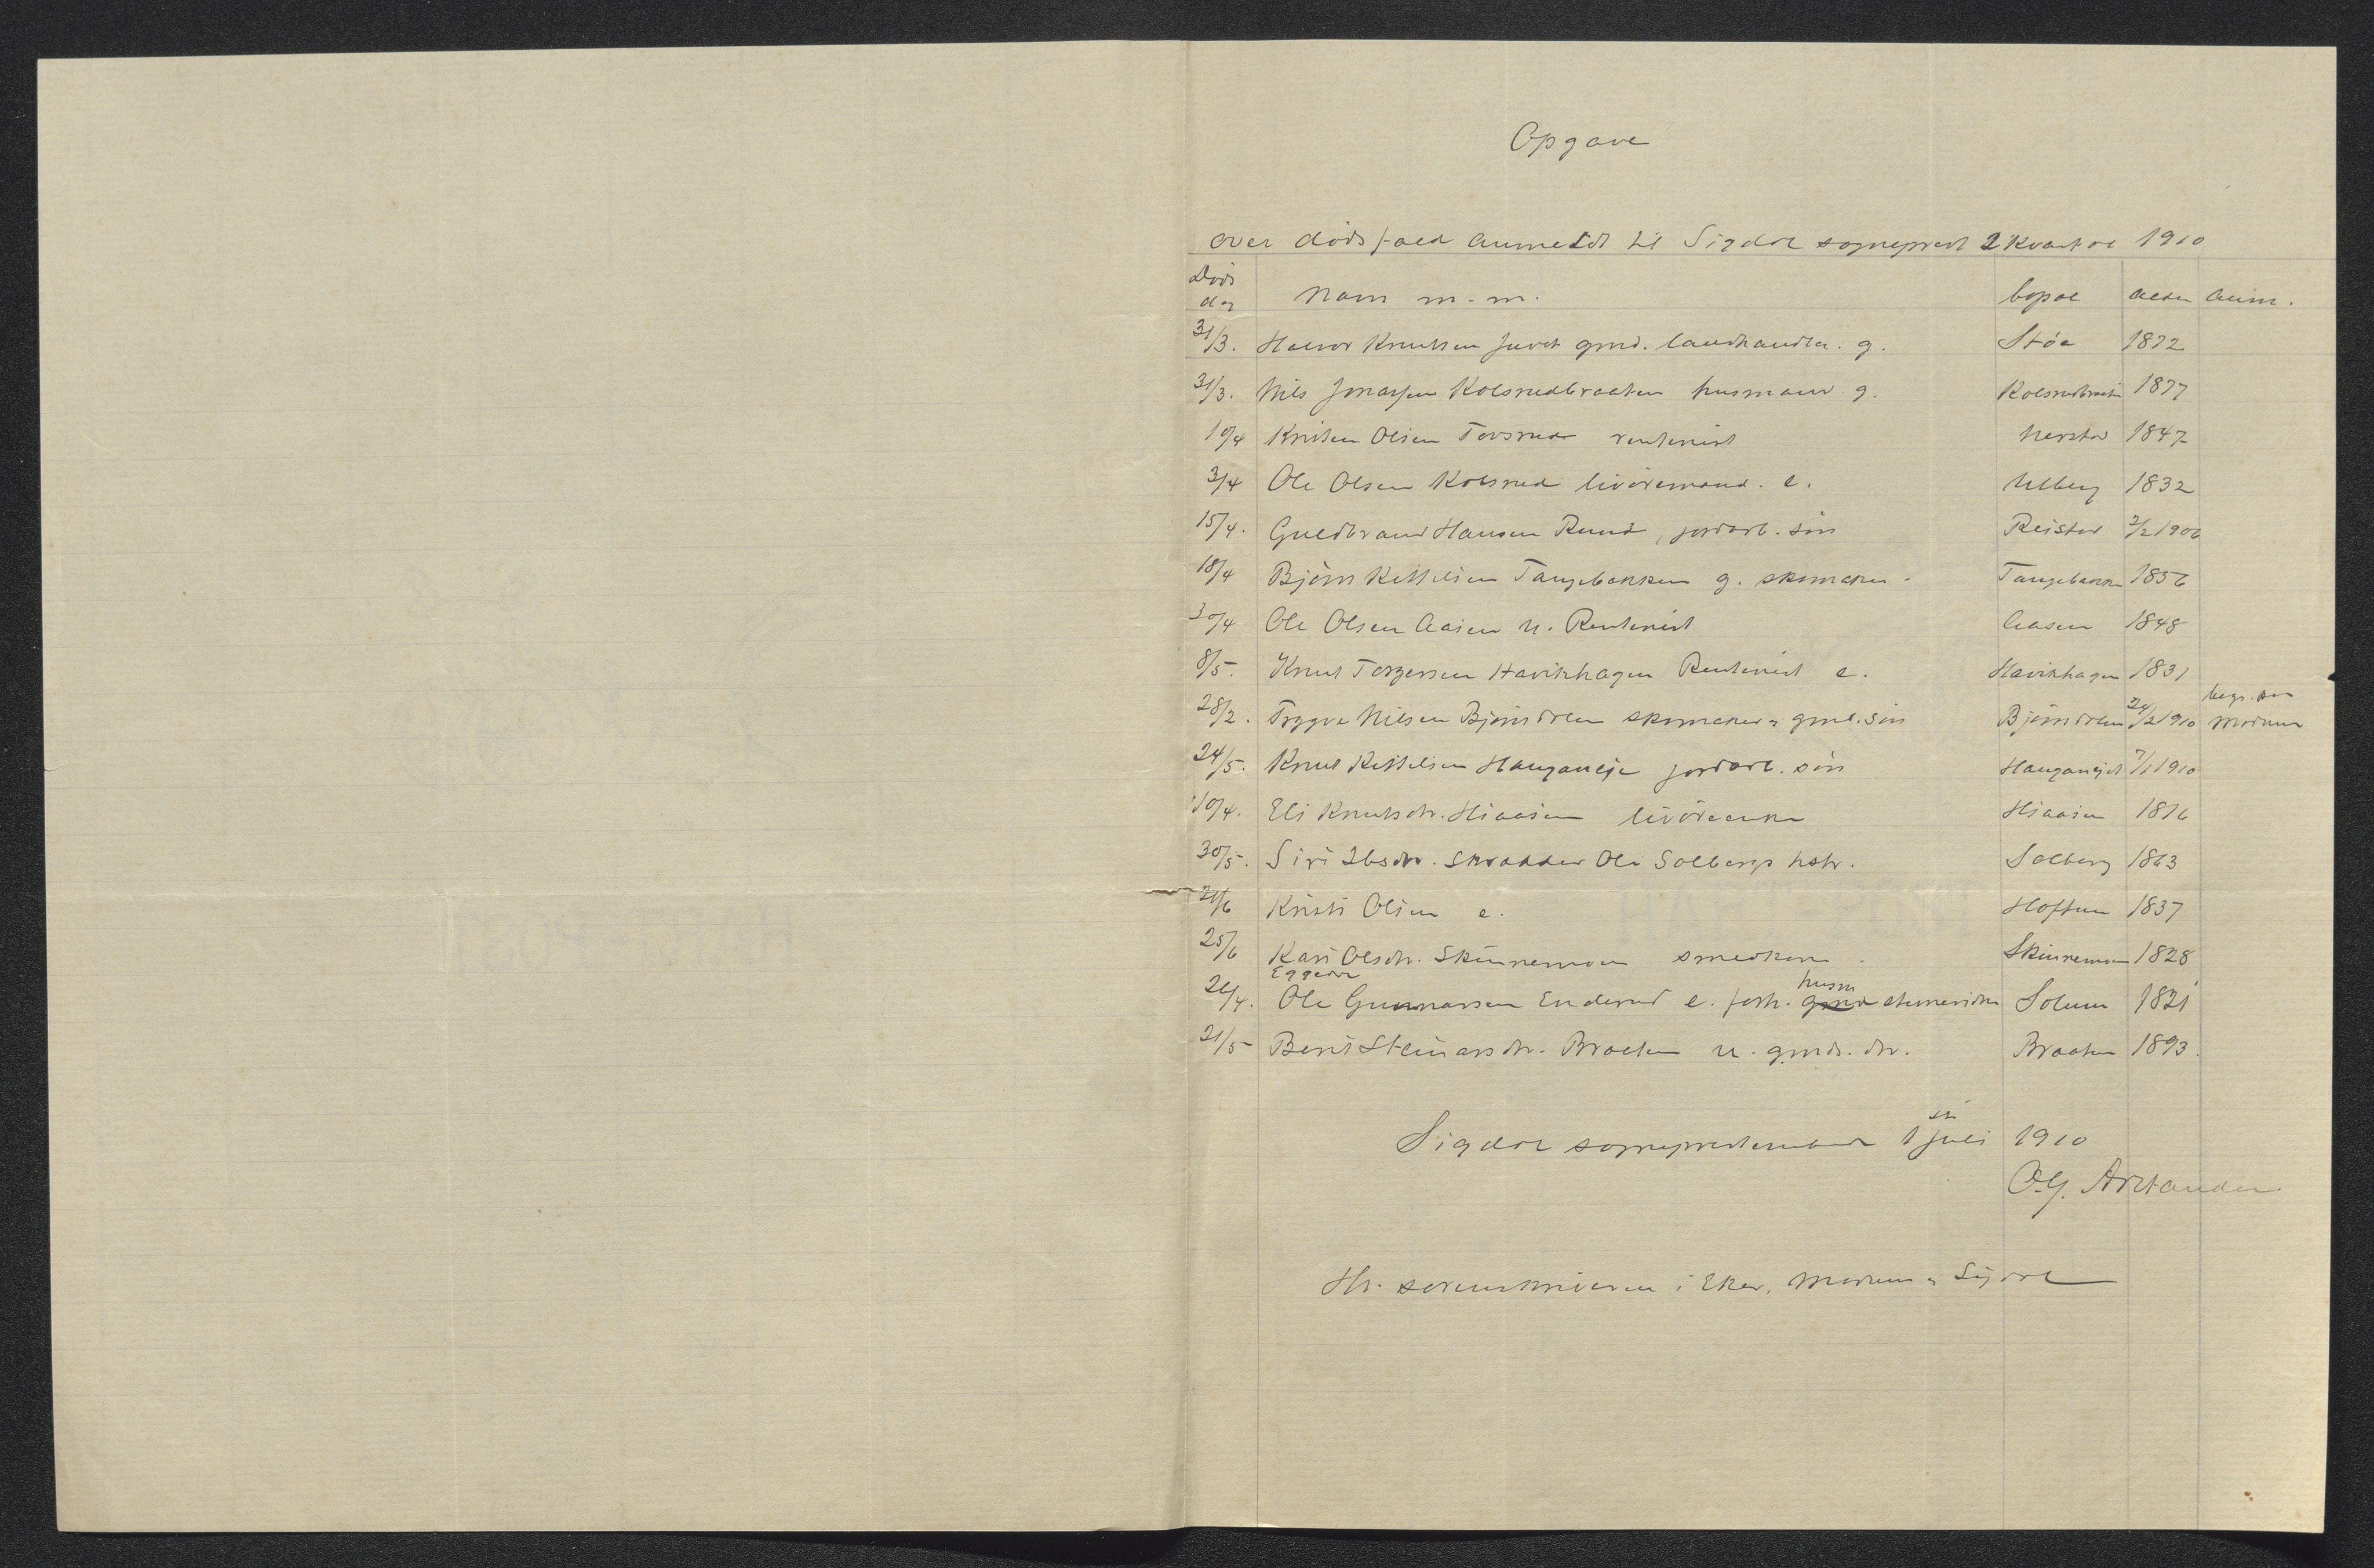 Opgave
over dødsfald anmeldt til Sigdal sogneprest 2 kvartal 1910
Døds dag Navn m.m. bopæl alder anm.
31/3. Halvor Knutsen Juvet gmd. landhandler. g. Støa 1872
31/3. Nils Jonassen Kolsrudbraaten husmand g. Kolsrudbraat 1877
10/4 Kristen Olsen Tovsrud rentenist Nerstad 1847
3/4 Ole Olsen Kolsrud livøremand. e. Ulberg 1832
15/4. Guldbrand Hansen Rund, jordarb. søn Reistad 2/2 1906
18/4 Bjørn Kittilsen Tangebakken g. skomaker. Tangebakken 1856
30/4 Ole Olsen Aasen u. Rentenist Aasen 1848
8/5. Knut Torgersen Havikhagen Rentenist e. Havikhagen 1831
28/2. Trygve Nilsen Bjørndalen skomaker & gmd. søn Bjørndalen 24/2 1910 begr. paa Modum
24/5. Knut Kittilsen Hauganeje jordarb. søn Hauganejet 7/1 1910
10/4. Eli Knutsdtr. Hiaasen livøreenke Hiaasen 1816
30/5. Siri Ibsdtr. Skrædder Ole Solbergs hstr. Solberg 1863
21/6 Kristi Olsen e. Hoftun 1837
25/6 Kari Olsdtr. Skinnemoen smedkone. Skinnemoen 1828
Eggedal
26/4. Ole Gunnarsen Enderud e. forh. gmd husm etunevidne Solum 1821
21/5 Berit Steinarsdtr. Braaten u. gmds. dtr. Braaten 1893.
Sigdal sogneprestembede 1st juli 1910
O.G. Arctander
Hr. sorenskriveren i Eker, Modum & Sigdal